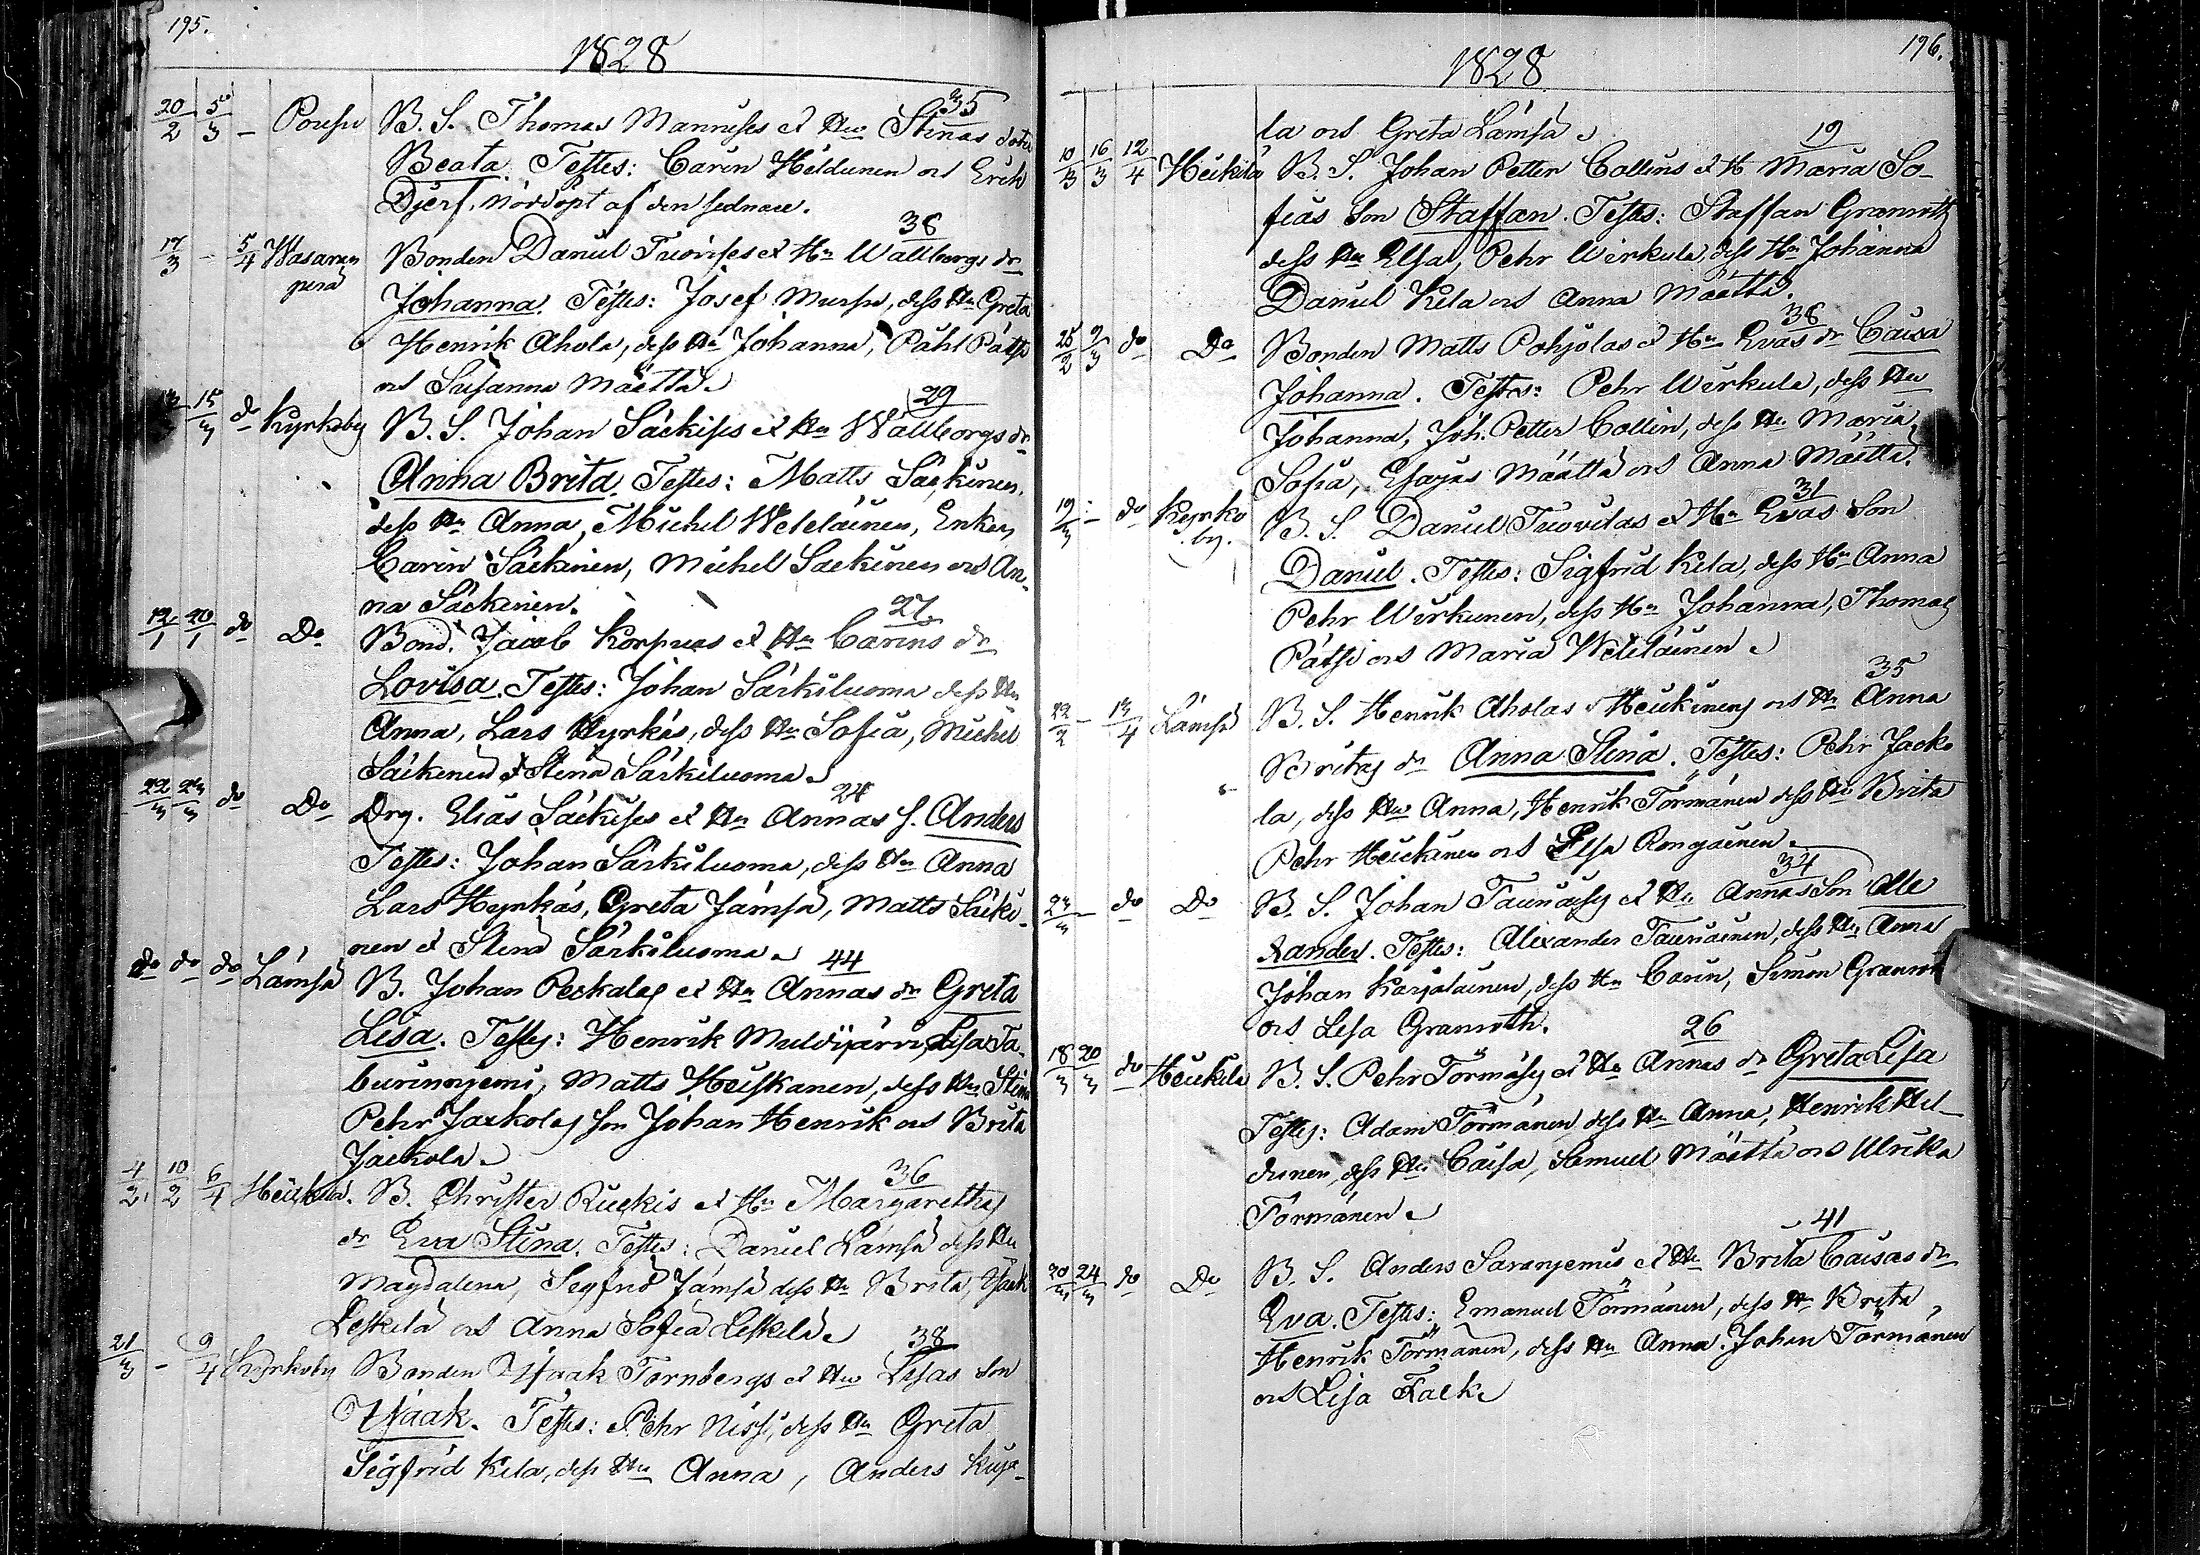 195.
1828
35
20/2 5/3 – Poussu B. S. Thomas Mannises et Hu Stinas doter
Beata. Testes: Carin Hildunen och Erik
Djerf, nöddöpt af den sednare.
38
17/3 – 5/4 Wasaran Bonden Daniel Tuovises et Hu Wallborgs dr
perä Johanna. Testes: Josef Mursu, dess Hu Greta
Henrik Ahola, dess Hu Johanna, Påhl Pätsi
och Susanna Määttä.
29
15/3 do Kyrkoby B. S. Johan Säckises et Hu Wallborgs dr
Anna Brita. Testes: Matts Säckinen,
dess Hu Anna, Michel Weteläinen, Enkan
Carin Säckinen, Michel Säckinen och An-
na Säckinen.
27
12/1 20/1 do Do Bond. Jacob Korpuas et Hu Carins dr
Lovisa. Testes: Johan Särkiluoma dess Hu
Anna, Lars Hyrkäs, dess Hu Sofia, Michel
Säckinen et Stina Särkiluoma.
24
22/3 23/3 do Do Drg. Elias Säckises et Hu Annas s. Anders
Testes: Johan Särkiluoma, dess Hu Anna
Lars Hyrkäs, Greta Jämsä, Matts Säcki-
nen et Stina Särkiluoma.
44
do do do Lämsä B. Johan Peckalas et Hu Annas dr Greta
Lisa. Testes: Henrik Muldijärvi, Lisa Ta-
burinnjemi, Matts Heiskanen, dess Hu Stina
Pehr Jaakolas son Johan Henrik och Brita
Jaekola.
36
4/2 10/2 6/4 Heikkilä. B. Christer Rückis et Hu Margarethas
dr Eva Stina. Testes: Daniel Lämsä dess Hu
Magdalena, Segfrid Jämsä dess Hu Brita, Isaak
Leskelä och Anna Sofia Leskelä.
38
21/3 – 9/4 Kyrkoby Bonden Isaak Tornbergs et Hu Lisas Son
Isaak. Testes: Pehr Nissi, dess Hu Greta
Sigfrid Kela, dess Hu Anna, Anders Kuja-
196.
1828
la och Greta Lämsä.
19
10/3 16/3 12/4 Heikkilä B. S. Johan Petter Collins et H Maria So-
fias Son Staffan. Testes: Staffan Granroth
dess Hu Elsa, Pehr Wirkula, dess Hu Johanna
Daniel Kela och Anna Määttä.
38
25/2 9/3 do Do Bonden Matts Pohjolas et Hu Evas dr Caisa
Johanna. Testes: Pehr Wirkula, dess Hu
Johanna, Joh. Petter Collin, dess Hu Maria
Sofia, Esajas Määttä och Anna Määttä.
31
19/3 – do Kyrko B. S. Daniel Tuovilas et Hu Evas Son
by. Daniel. Testes: Sigfrid Kela, dess Hu Anna
Pehr Wirkunen, dess Hu Johanna, Thomas
Pätsi och Maria Weteläinen.
35
22/2 – 13/4 Lämsä B. S. Henrik Aholas Heikinens och Hu Anna
Britas dr Anna Stina. Testes: Pehr Jacko
la, dess Hu Anna, Henrik Törmänen dess Hu Brita
Pehr Heickinen och Elsa Rongainen.
34
23/3 – do Do B. S. Johan Taunäises et Hu Annas Son Ale
xander. Testes: Alexander Taunainen, dess Hu Anna
Johan Karjalainen, dess Hu Carin, Simon Granroth
och Lisa Granroth.
26
18/3 20/3 do Heikkilä B. S. Pehr Törmäses et Hu Annas dr Greta Lisa
Testes: Adam Törmänen dess Hu Anna, Henrik Hil-
dunen, dess Hu Caisa, Samuel Määttä och Ulrika
Törmänen.
41
20/3 24/3 do Do B. S. Anders Saranjemis et Hu Brita Caisas dr
Eva. Testes: Emanuel Törmänen, dess Hu Brita,
Henrik Törmänen, dess Hu Anna. Johan Törmänen
och Lisa Falk.